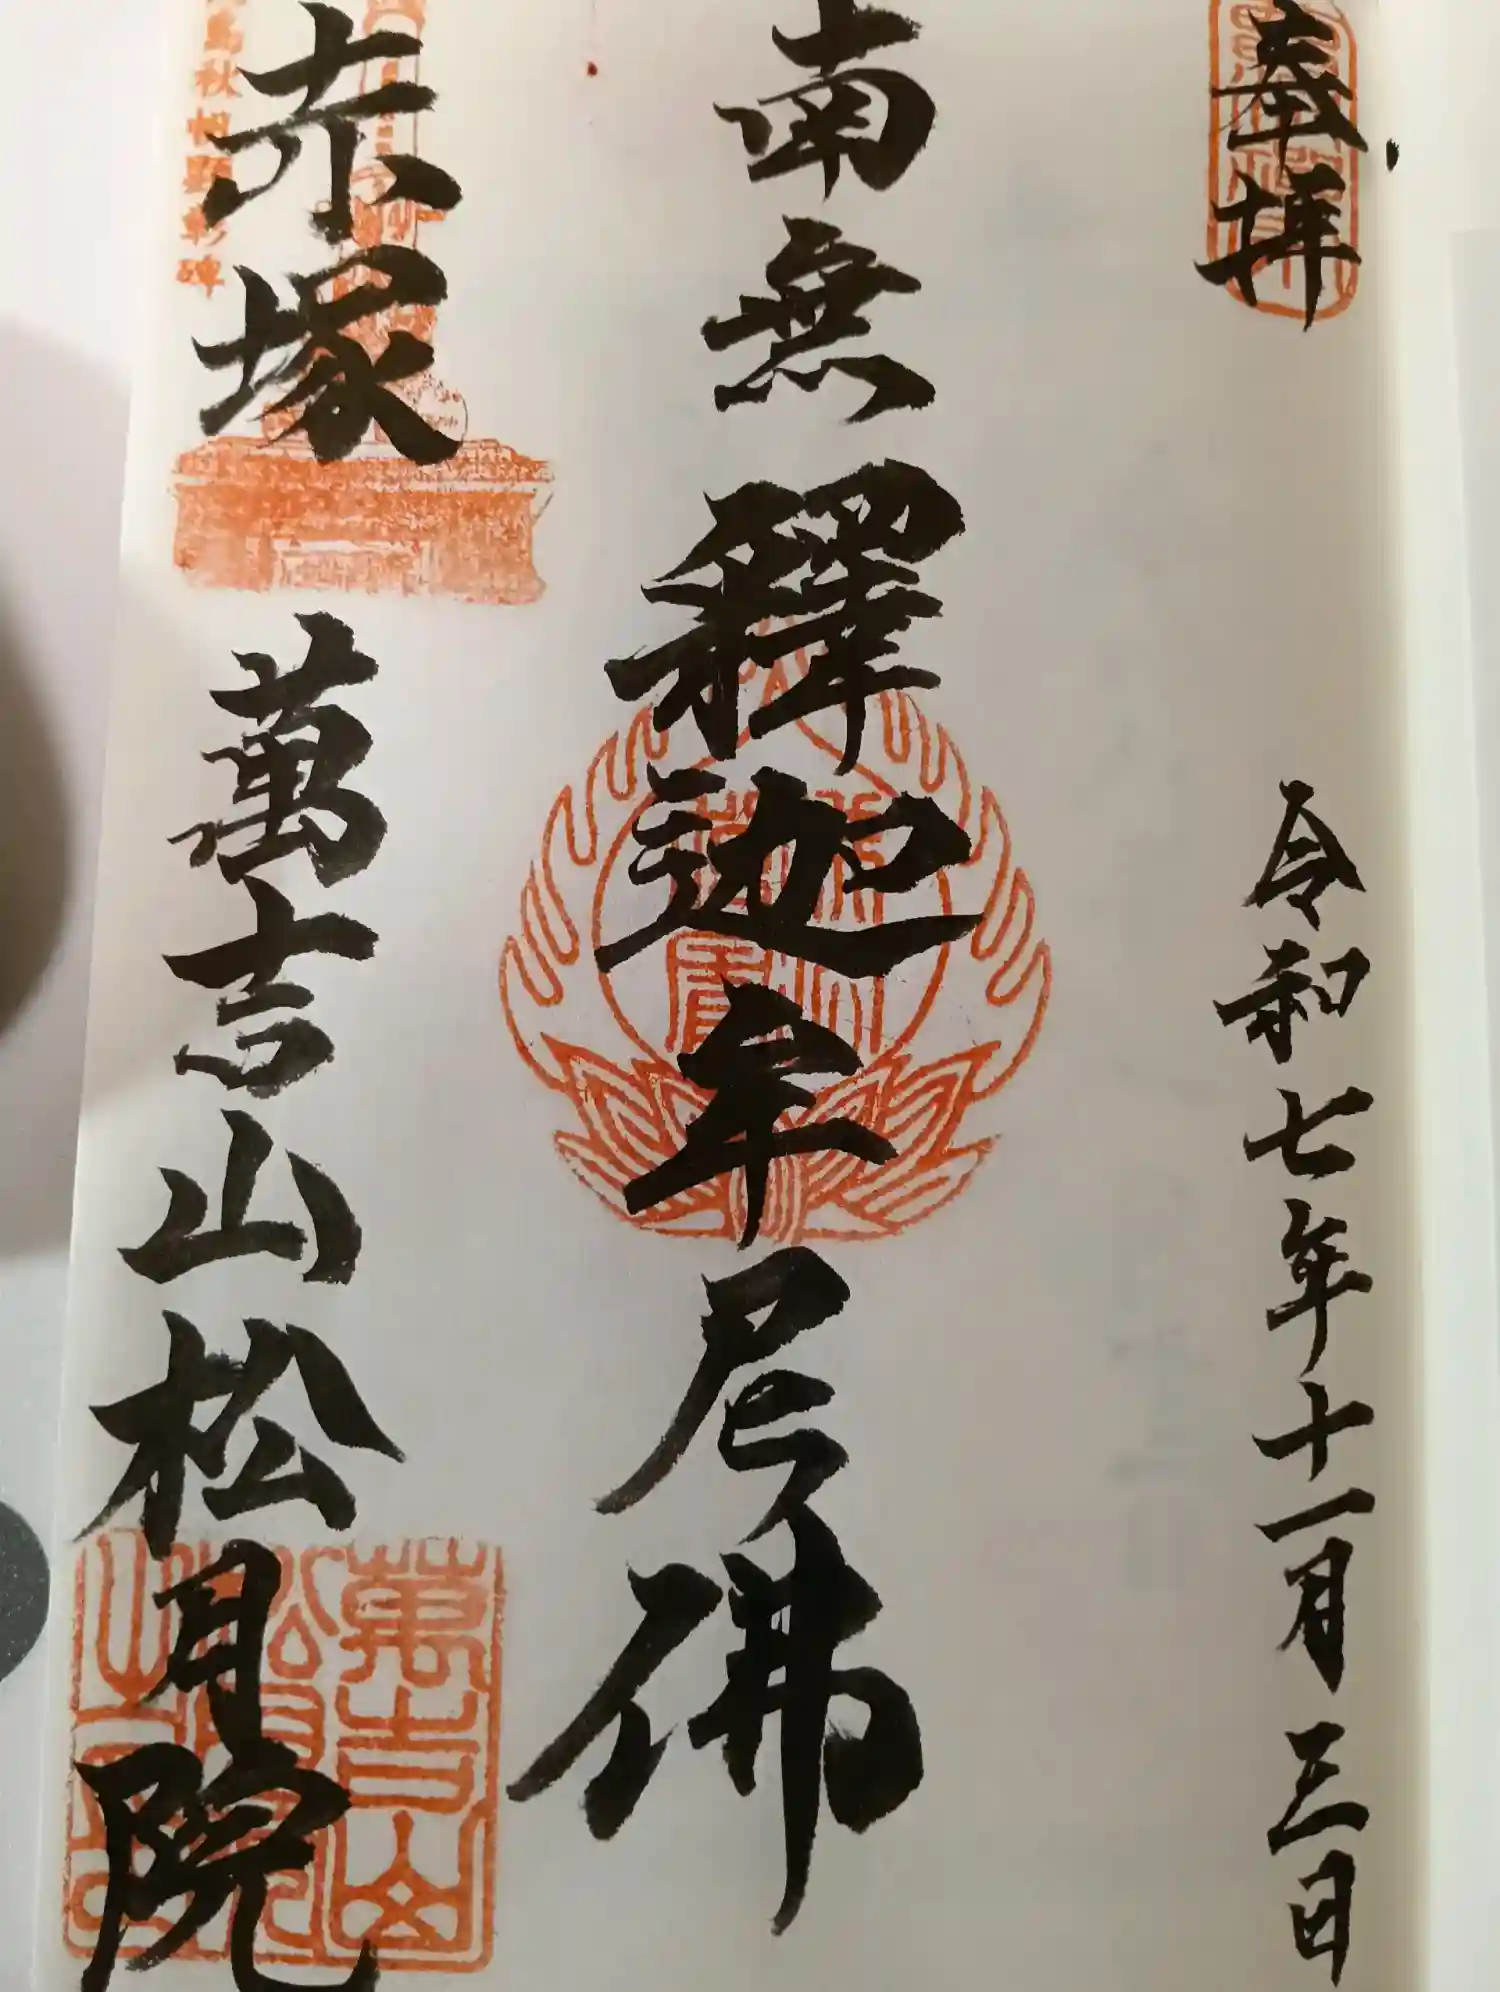 奉拝
令和七年十一月三日
南無釋迦牟尼佛
赤塚
萬吉山松月院
秋帆顕彰碑
萬吉山